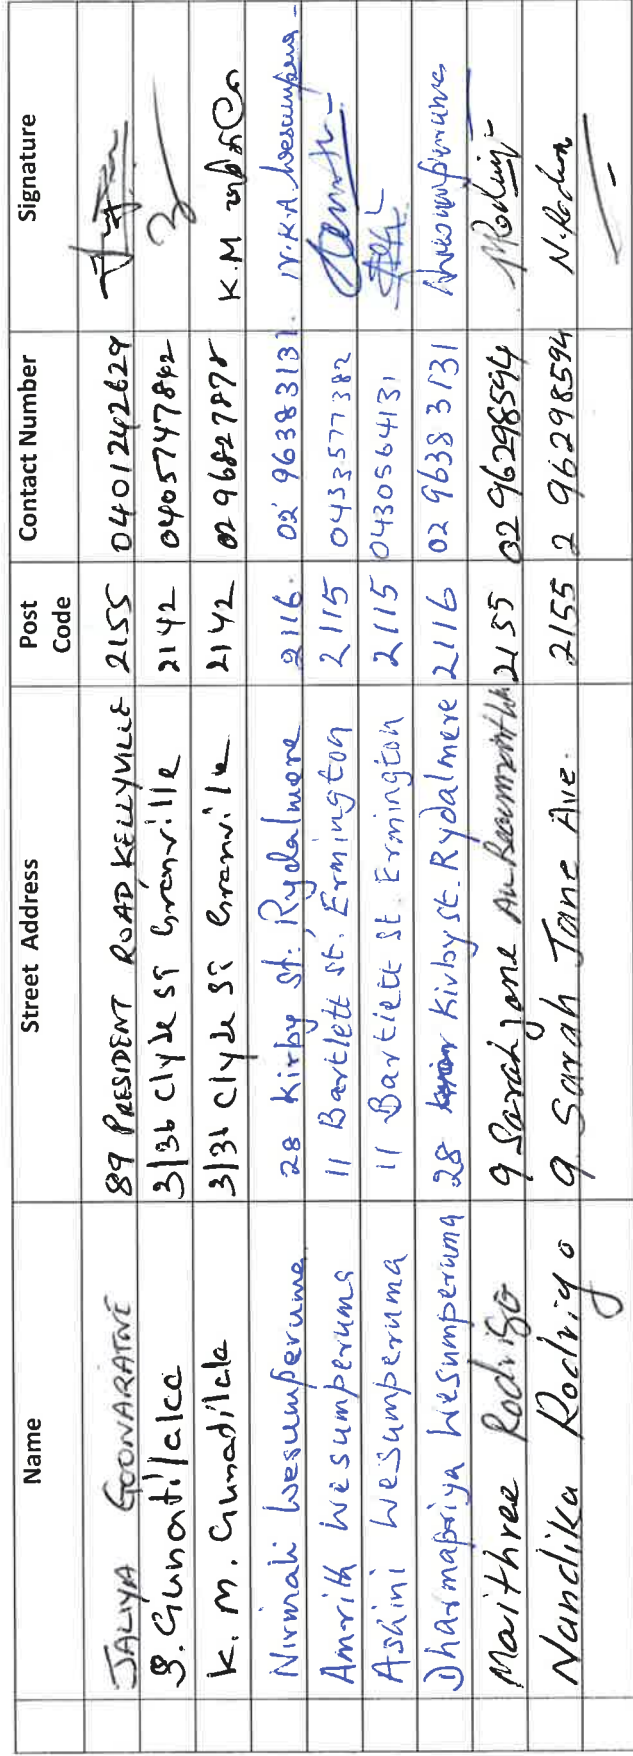 Name Street Address Post Code Contact Number Signature
JALIYA GOONARATNE 89 PRESIDENT ROAD KELLYVILLE 2155 0401242629
S. Gunatilake 3/36 Clyde St Granville 2142 0405747842
K. M. Gunadilak 3/36 Clyde St Granville 2142 02 96827878 K.M
Nirmali Wesumperuma 28 Kirby St. Rydalmere 2116. 02 96383131. N.K.A Wesumperuma
Amrith Wesumperuma 11 Bartlett St. Ermington 2115 0433577382
Ashini Wesumperuma 11 Bartlett St. Ermington 2115 0430564131
Dharmapriya Wesumperuma 28 Kirby St. Rydalmere 2116 02 9638 3131
Maithree Rodrigo 9 Sarah Jane Av Beaumont Hills 2155 02 96298594
Nandika Rodrigo 9 Sarah Jane Ave. 2155 2 96298594